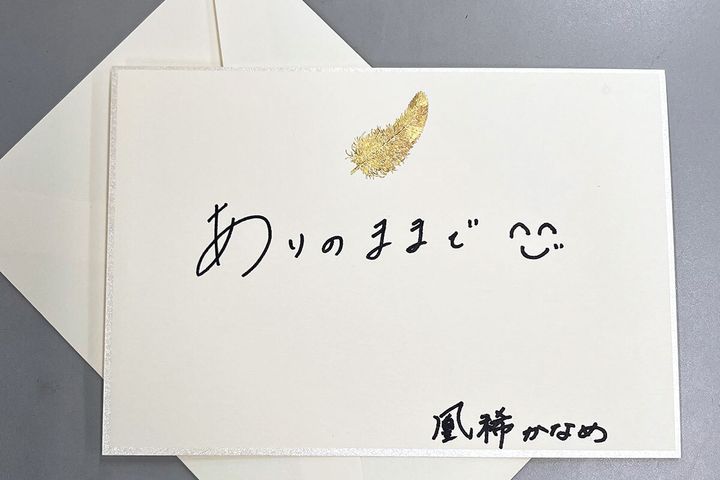 ありのままで
凰稀かなめ